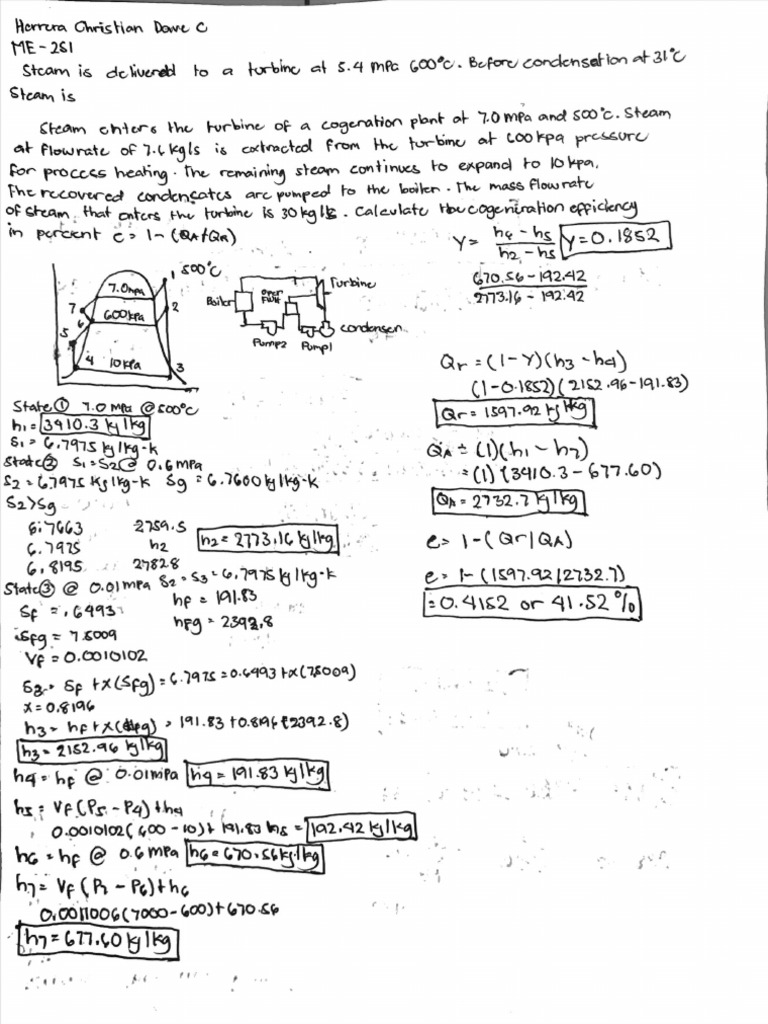 Herrera Christian Dave C
ME-251
Steam is delivered to a turbine at 5.4 mpa 600°c. Before condensation at 31°C
Steam is
Steam enters the turbine of a cogeration plant at 7.0 mpa and 500°c. Steam
at flowrate of 7.6 kg/s is extracted from the turbine at 600kpa pressure
for process heating. The remaining steam continues to expand to 10kpa.
The recovered condensates are pumped to the boiler. The mass flow rate
of steam that enters the turbine is 30 kg/s. Calculate the cogeneration efficiency
in percent e= 1-(QA/QR)
Y = h6 - h5 / h2 - h5
Y=0.1852
670.56-192.42
2773.16-192.42
1 500°C
7.0mpa
7
2
600kpa
6
5
4
10kpa
3
Boiler
open
FWH
Turbine
condenser
Pump2
Pump1
Qr = (1-Y)(h3-h4)
(1-0.1852)(2152.96-191.83)
Qr = 1597.92 kj/kg
QA = (1)(h1-h7)
= (1)(3410.3-677.60)
QA = 2732.7 kj/kg
e= 1-(Qr/QA)
e= 1-(1597.92/2732.7)
=0.4152 or 41.52%
State① 7.0 mpa @500°c
h1 = 3410.3 kj/kg
s1 = 6.7975 kj/kg-k
State② s1=s2@ 0.6mpa
s2 = 6.7975 kj/kg-k sg = 6.7600 kj/kg-k
s2>sg
6.7663 2759.5
6.7975 h2
6.8195 2782.8
h2 = 2773.16 kj/kg
State③ @ 0.01mpa s2 = s3 = 6.7975 kj/kg-k
sf = .6493
hf = 191.83
sfg = 7.5009
hfg = 2392.8
vf = 0.0010102
s3 = sf +x(sfg) = 6.7975=0.6493+x(7.5009)
x=0.8196
h3 = hf+x(hfg) = 191.83+0.8196(2392.8)
h3 = 2152.96 kj/kg
h4 = hf @ 0.01mpa h4 = 191.83 kj/kg
h5 = vf (P5-P4)+h4
0.0010102(600-10)+191.83 h5 = 192.42 kj/kg
h6 = hf @ 0.6mpa h6 = 670.56 kj/kg
h7 = vf (P7-P6)+h6
0.0011006(7000-600)+670.56
h7 = 677.60 kj/kg